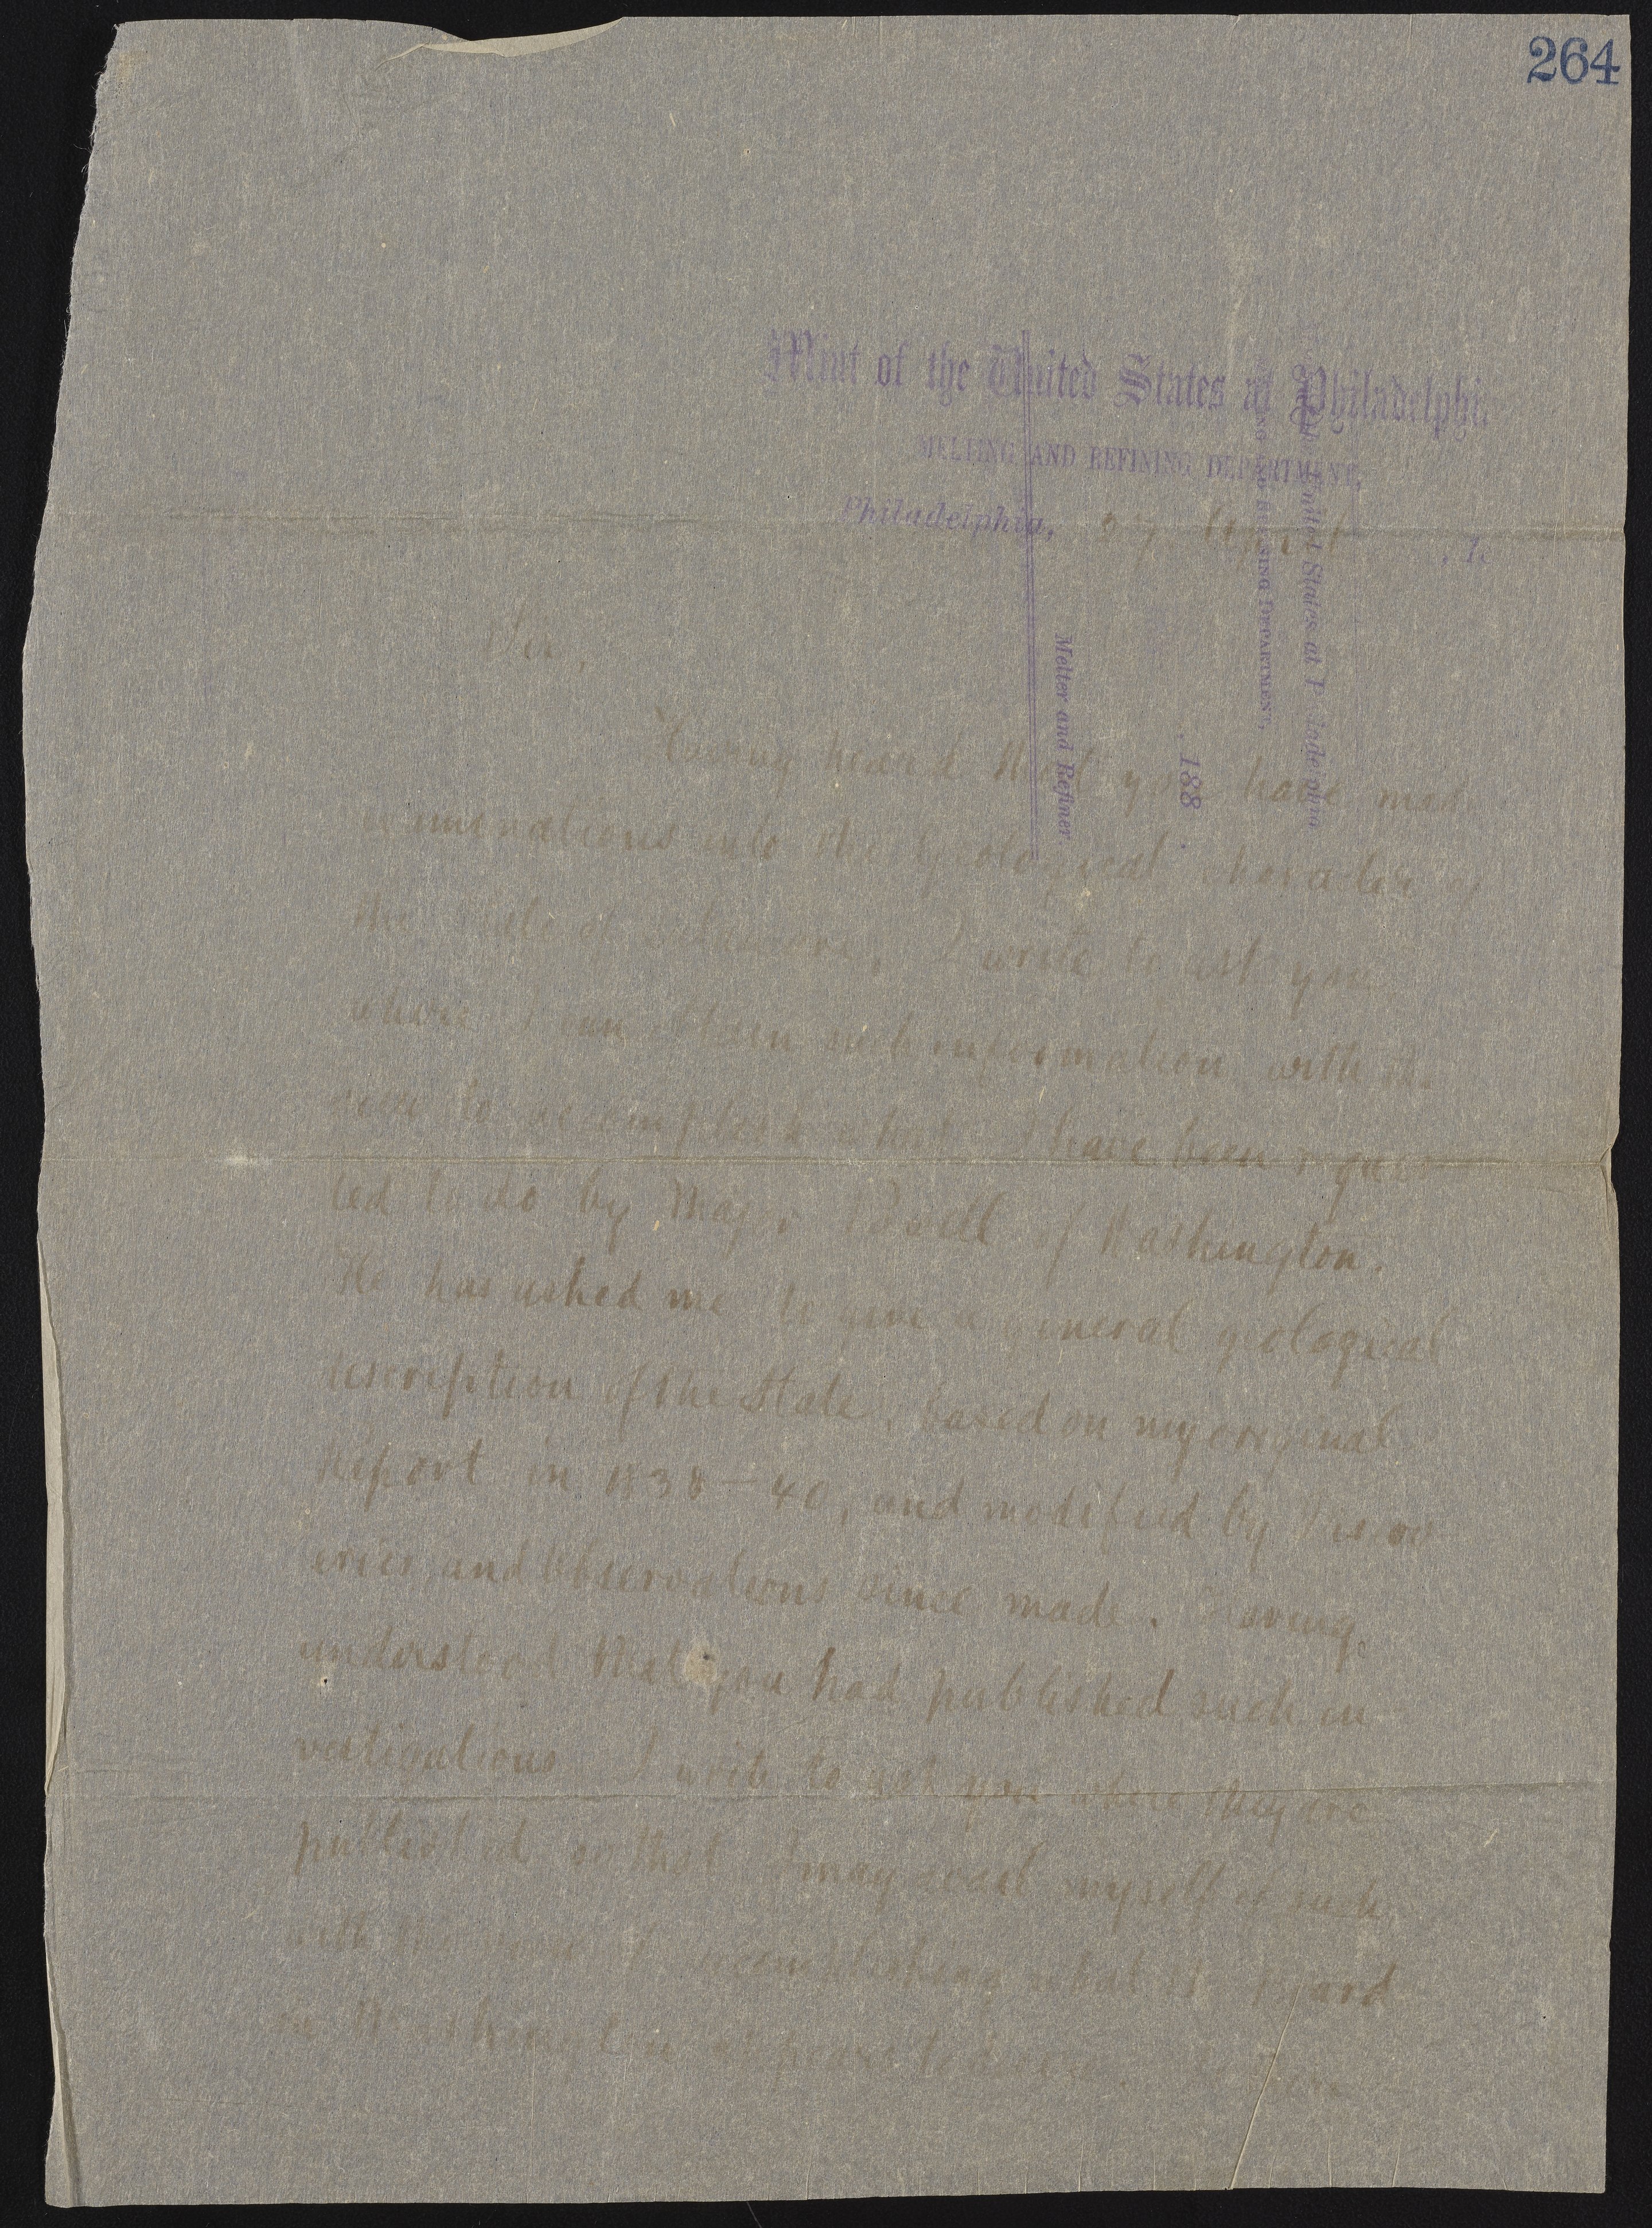 264
Mint of the United States at Philadelphi
MELTING AND REFINING DEPARTMENT,
Philadelphia, 27 April , 18
Melter and Refiner.
, 188 .
REFINING DEPARTMENT,
United States at
Sir,
Having heard that you have made
into the Geological character of
the State of Delaware, I write to ask you
where I can obtain such information with the
view to accomplish what I have been reques
ted to do by Major Powell of Washington.
He has asked me to give a general geological
description of the State, based on my original
Report in 1838–40, and modified by Discov
eries and Observations since made. Having
understood that you had published such in
vestigations I write to ask you where they are
published so that I may avail myself of such
with the view of accomplishing what is
in Washington